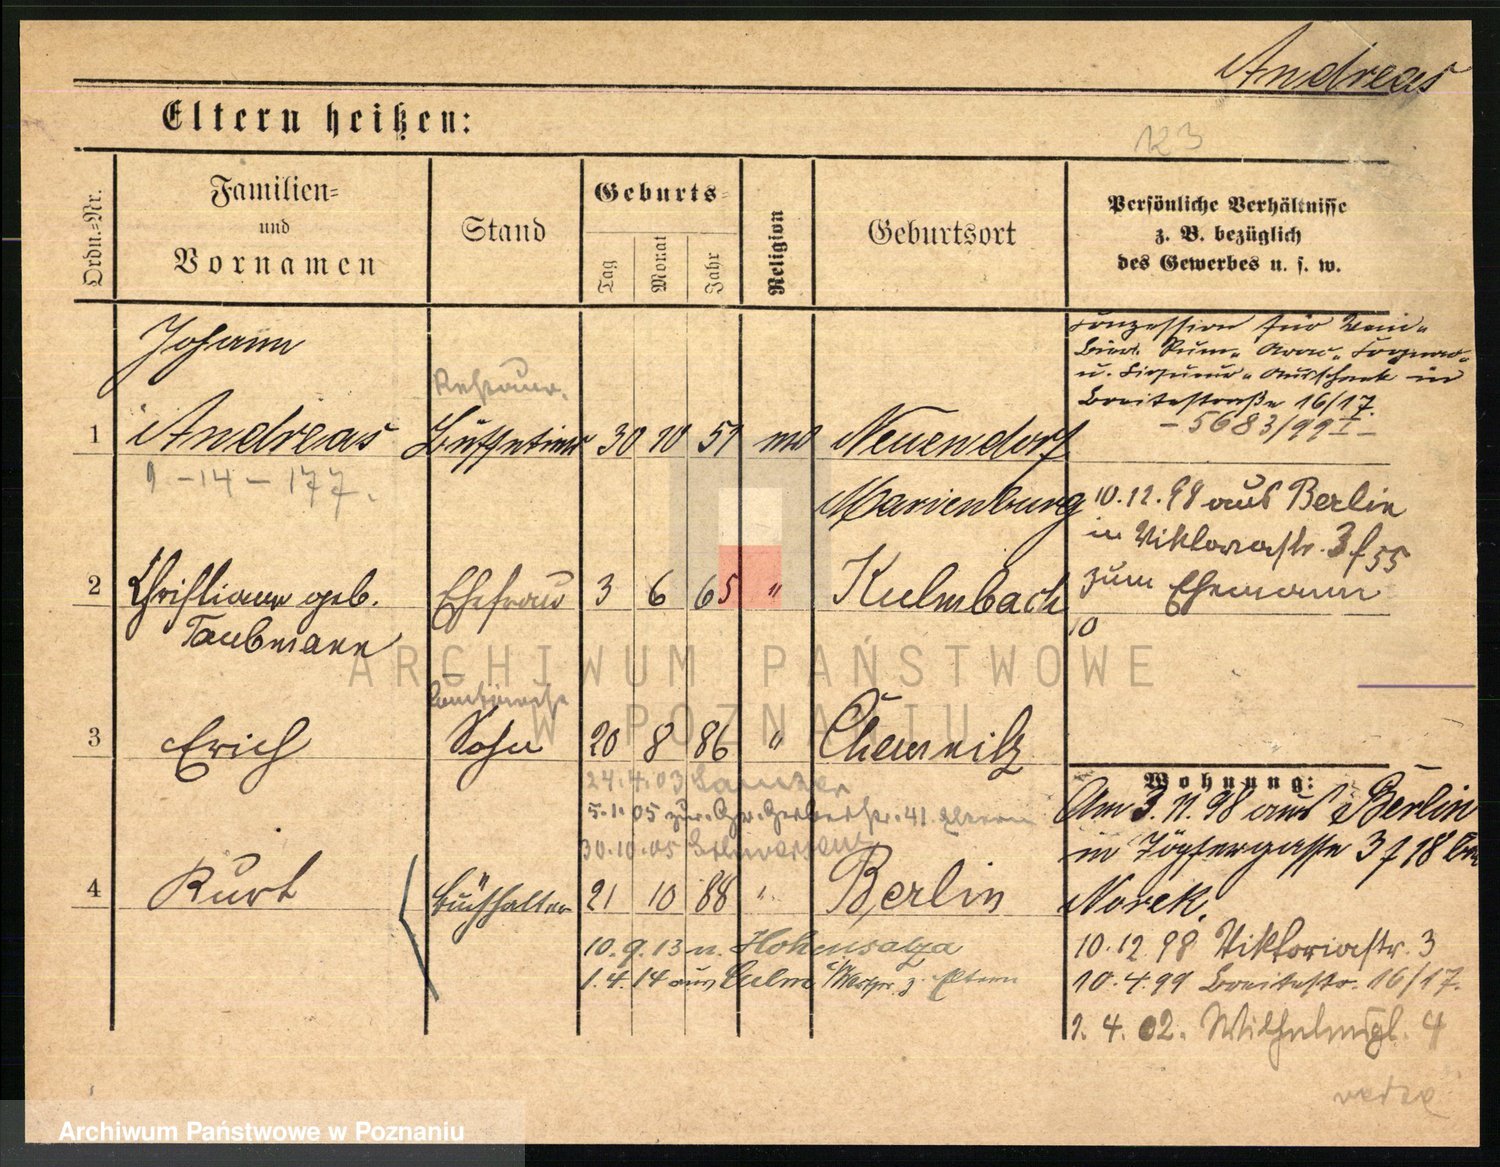 Andreas
Eltern heißen:
123
Ordn.-Nr.
Familien-
und
Vornamen
Stand
Geburts-
Tag
Monat
Jahr
Religion
Geburtsort
Persönliche Verhältnisse
z. B. bezüglich
des Gewerbes u. s. w.
Johann
Restaur.
1 Andreas Buffetier 30 10 51 Neuendorf
1-14-177.
Marienburg
Konzession für Wein-
Bier- Rum- Arac- Cognac-
u. Liqueur-Ausschank in
Breitestraße 16/17.
-5683/99 I-
10.12.98 aus Berlin
in Viktoriastr. 3 f 55
zum Ehemann
2 Christiane geb. Ehefrau 3 6 65 " Kulmbach
Taubmann
10
3 Erich Sohn 20 8 86 " Chemnitz
24.4.03
5.1.05 zur. Gr. Gerberstr. 41. Eltern
30.10.05
4 Kurt Buchhalter 21 10 88 " Berlin
10.9.13 n. Hohensalza
1.4.14 aus Culm z. Eltern
Wohnung:
Am 3.11.98 aus Berlin
in Töpfergasse 3 f 18 bei
Norek.
10.12.98 Viktoriastr. 3
10.4.99 Breitestr. 16/17.
1.4.02. Wilhelmspl. 4
ARCHIWUM PAŃSTWOWE
W POZNANIU
Archiwum Państwowe w Poznaniu